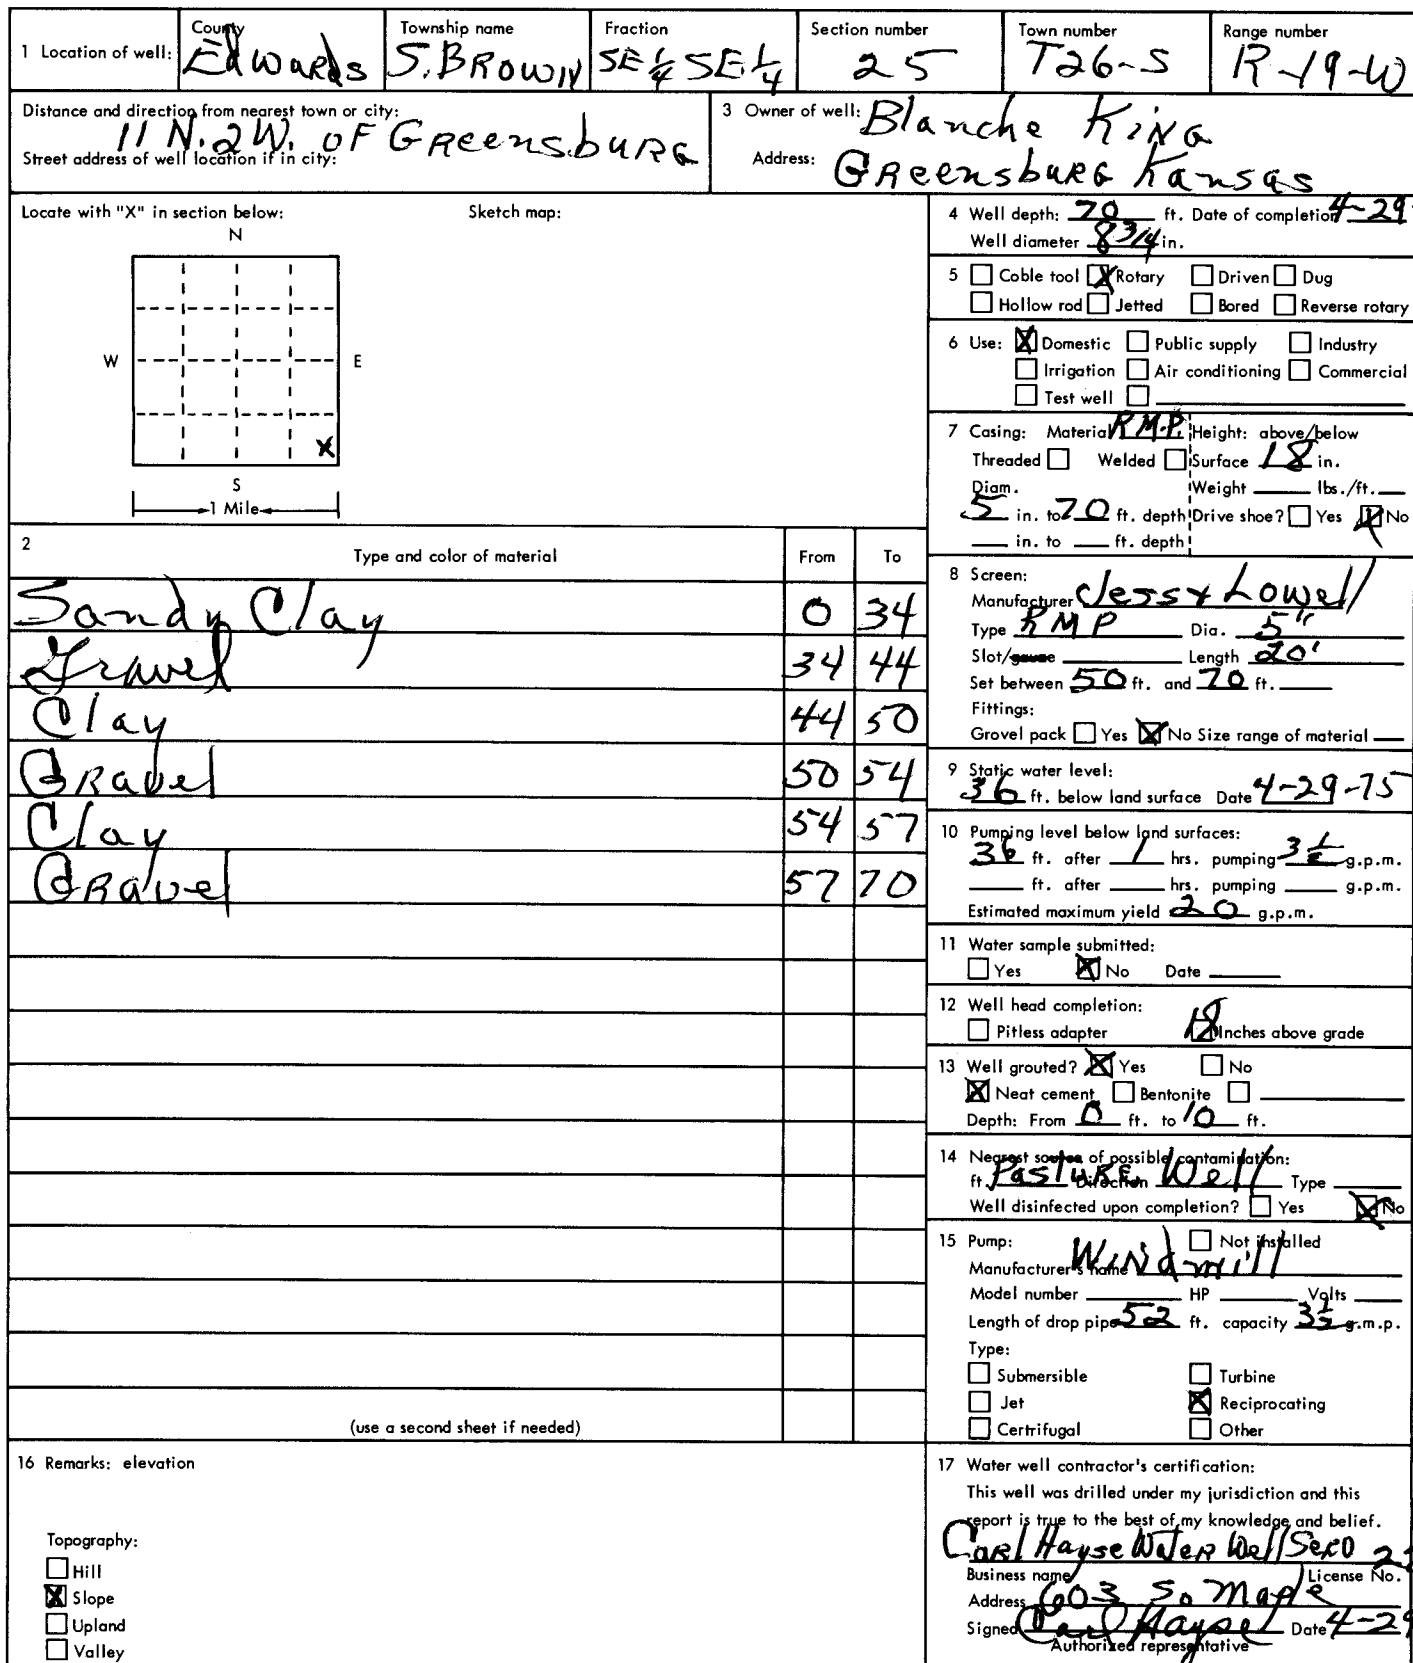 1 Location of well: County Edwards Township name S. BROWN Fraction SE 1/4 SE 1/4 Section number 25 Town number T26-S Range number R-19-W
Distance and direction from nearest town or city: 11 N. 2 W. OF Greensburg
Street address of well location if in city:
3 Owner of well: Blanche King
Address: Greensburg Kansas
Locate with "X" in section below: Sketch map:
N
W E
X
S
1 Mile
2 Type and color of material From To
Sandy Clay 0 34
Gravel 34 44
Clay 44 50
Gravel 50 54
Clay 54 57
Gravel 57 70
(use a second sheet if needed)
4 Well depth: 70 ft. Date of completion 4-29
Well diameter 8 3/4 in.
5 Coble tool X Rotary Driven Dug
Hollow rod Jetted Bored Reverse rotary
6 Use: X Domestic Public supply Industry
Irrigation Air conditioning Commercial
Test well
7 Casing: Material R.M.P. Height: above/below
Threaded Welded Surface 18 in.
Diam. Weight lbs./ft.
5 in. to 70 ft. depth Drive shoe? Yes X No
in. to ft. depth
8 Screen:
Manufacturer Jess & Lowell
Type RMP Dia. 5"
Slot/gauze Length 20'
Set between 50 ft. and 70 ft.
Fittings:
Grovel pack Yes X No Size range of material
9 Static water level:
36 ft. below land surface Date 4-29-75
10 Pumping level below land surfaces:
36 ft. after 1 hrs. pumping 3 1/2 g.p.m.
ft. after hrs. pumping g.p.m.
Estimated maximum yield 20 g.p.m.
11 Water sample submitted:
Yes X No Date
12 Well head completion:
Pitless adapter 18 Inches above grade
13 Well grouted? X Yes No
X Neat cement Bentonite
Depth: From 0 ft. to 10 ft.
14 Nearest source of possible contamination:
ft. Pasture Direction Well Type
Well disinfected upon completion? Yes X No
15 Pump: Not installed
Manufacturer's name Windmill
Model number HP Volts
Length of drop pipe 52 ft. capacity 3 1/2 g.m.p.
Type:
Submersible Turbine
Jet X Reciprocating
Certrifugal Other
16 Remarks: elevation
Topography:
Hill
X Slope
Upland
Valley
17 Water well contractor's certification:
This well was drilled under my jurisdiction and this
report is true to the best of my knowledge and belief.
Carl Hayse Water Well
Business name License No.
Address 603 So Maple
Signed Carl Hayse Date 4-29
Authorized representative